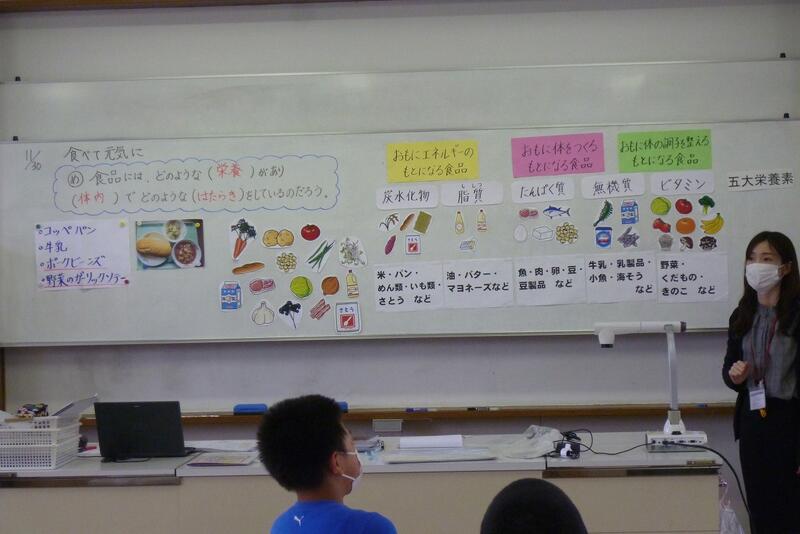 11/30
食べて元気に
め 食品には、どのような(栄養)があり
(体内)でどのような(はたらき)をしているのだろう。
・コッペパン
・牛乳
・ポークビーンズ
・野菜のガーリックソテー
おもにエネルギーの
もとになる食品
おもに体をつくる
もとになる食品
おもに体の調子を整える
もとになる食品
炭水化物
ししつ
脂質
たんぱく質
無機質
ビタミン
五大栄養素
さとう
米・パン・
めん類・いも類・
さとう など
油・バター・
マヨネーズなど
魚・肉・卵・豆・
豆製品 など
牛乳・乳製品・
小魚・海そう
など
野菜・
くだもの・
きのこ など